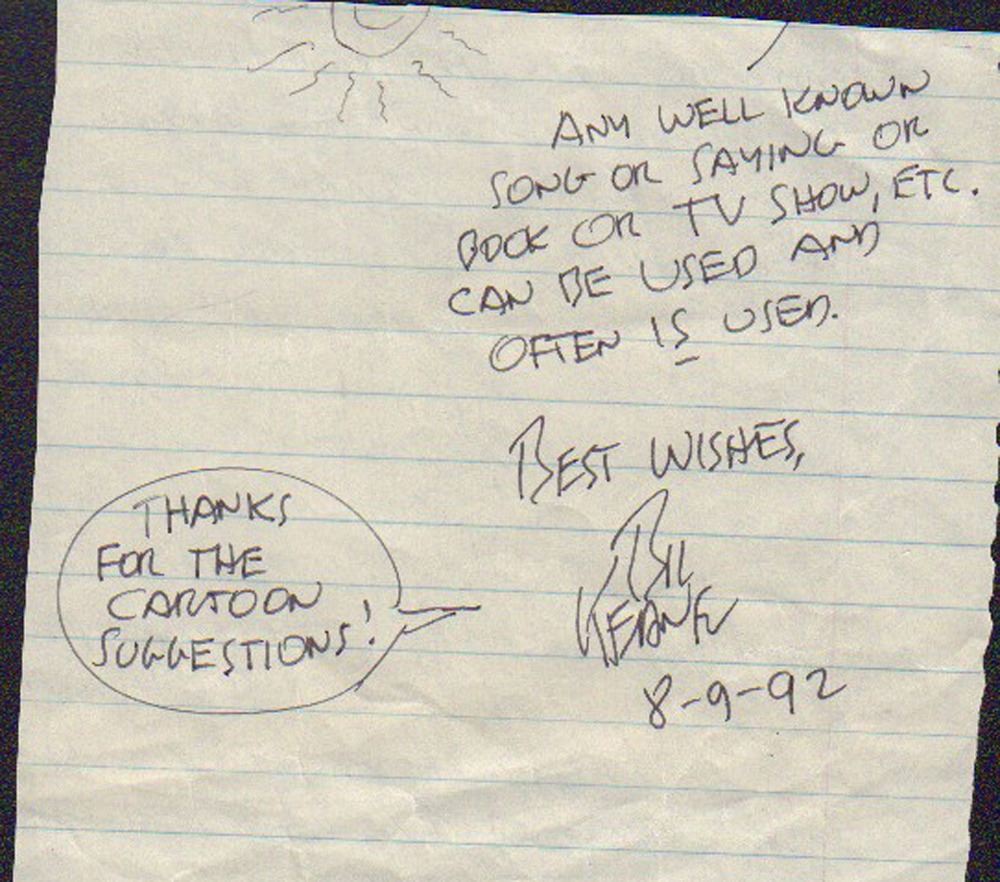 ANY WELL KNOWN
SONG OR SAYING OR
BOOK OR TV SHOW, ETC.
CAN BE USED AND
OFTEN IS USED.
BEST WISHES,
BIL
KEANE
8-9-92
THANKS
FOR THE
CARTOON
SUGGESTIONS!